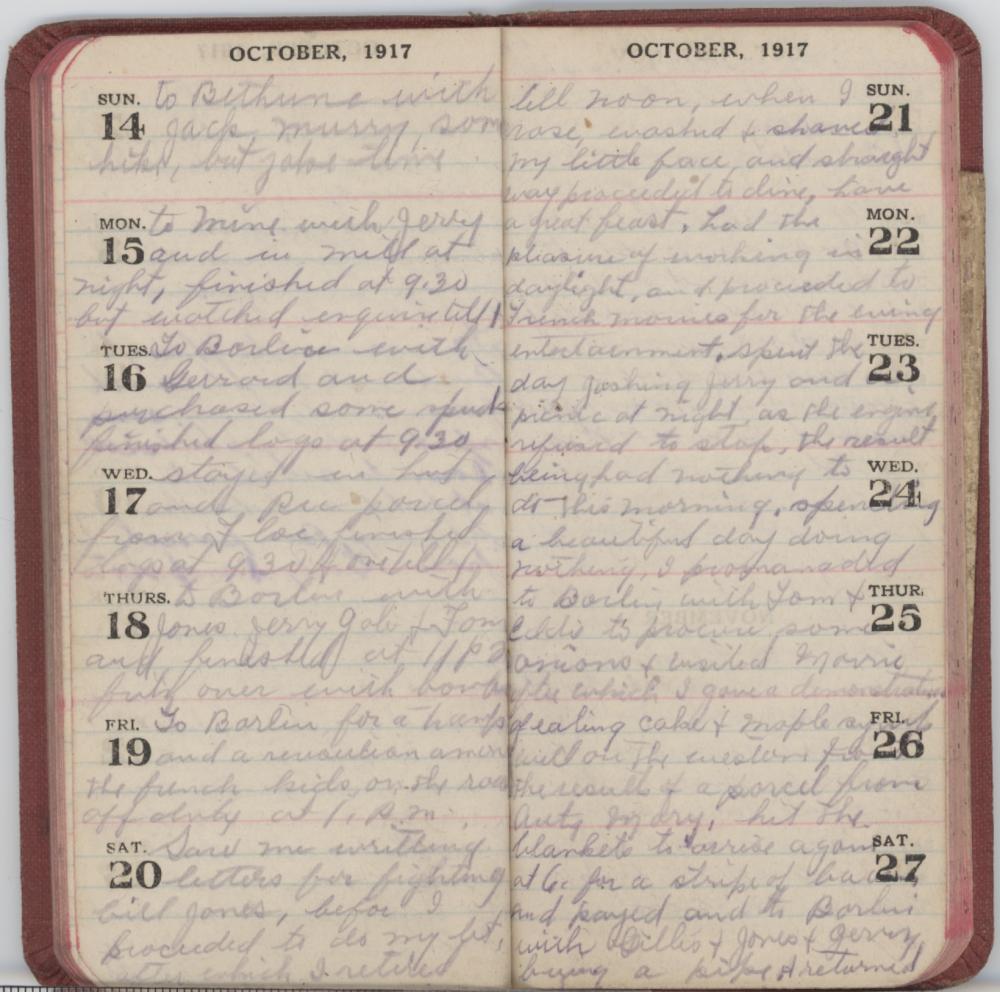 OCTOBER, 1917
SUN. to Bethune with
14 Jack, murry, som
hike, but joke time
MON. to mine with Jerry
15 and in mill at
night, finished at 9.30
but watched engine till 1
TUES. To Barlin with
16 Gerrard and
purchased some spuds
finished logs at 9.30
WED. stayed in hut
17 and Rec parcel
from finished
logs at 9.30 till 1
THURS. to Barlin with
18 Jones Jerry & Tom
and finished at 11 P.M
fritz over with bombs
FRI. To Barlin for a tramp
19 and a revolution among
the french kids, on the road
off duty at 1, P.M.
SAT. Saw me writting
20 letters for fighting
bill Jones, befor I
proceeded to do my bit,
after which I retired
OCTOBER, 1917
till noon, when I SUN.
rose, washed & shaved 21
my little face, and straight
way proceeded to dine, have
a great feast. Had the MON.
pleasure of working in 22
daylight, and proceeded to
French movies for the evning
entertainment. spent the TUES.
day joshing Jerry and 23
picnic at night, as the engine
refused to stop, the result
being had nothing to WED.
do this morning. spending 24
a beautiful day doing
nothing, I promanaded
to Barlin with Tom & THUR.
to procure some 25
onions & visited Movie
after which I gave a demonstration
of eating cake & maple syrup FRI.
on the western 26
the result & a parcel from
Auty Mary, hit the
blankets to arrise again SAT.
at 6: for a stripe of 27
and payed and to Barlin
with Gillis & Jones & Jerry,
buying a pipe & returned